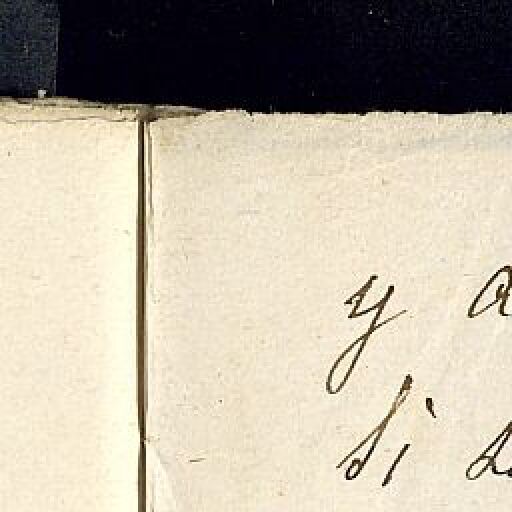 y a
si